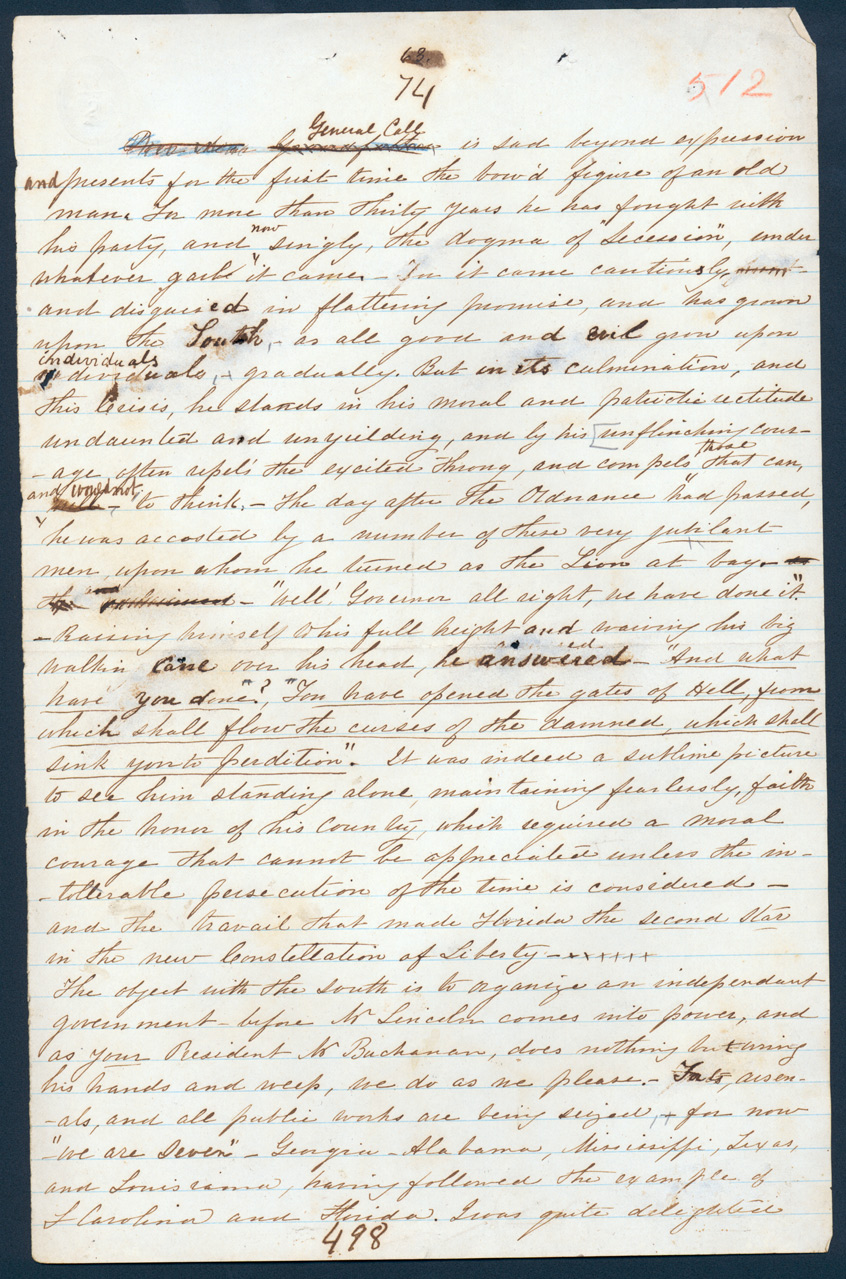 63.
74
512
General Call
is sad beyond expression
and presents for the first time the bow'd figure of an old
man. For more than thirty years he has fought with
now
his party, and singly, the dogma of "Secession", under
whatever "garb" it came. - For it came cautiously
and disguised in flattering promise, and has grown
upon the South, - as all good and evil grow upon
individuals
individuals, - gradually. But in its culmination, and
this Crisis, he stands in his moral and patriotic rectitude
undaunted and unyielding, and by his [unflinching cour-
those
-age, often repels the excited throng, and compels that can,
and would not
will - to think. - The day after the Ordnance had passed,
he was accosted by a number of these very jubilant
men, upon whom he turned as the Lion at bay. -
- "Well! Governor all right, we have done it".
- Raising himself to his full height and waiving his big
walkin cane over his head, he answered - "And what
have you done?" "You have opened the gates of Hell, from
which shall flow the curses of the damned, which shall
sink you to perdition". It was indeed a sublime picture
to see him standing alone, maintaining fearlessly, faith
in the honor of his Country, which required a moral
courage that cannot be appreciated unless the in-
-tollerable persecution of the time is considered -
and the travail that made Florida the second Star
in the new Constellation of Liberty - ××××××
The object with the South is to organize an independant
government - before Mr Lincoln comes into power, and
as your President Mr Buchanan, does nothing but wring
his hands and weep, we do as we please. - Forts, arsen-
-als, and all public works are being seized, - for now
"we are Seven" - Georgia - Alabama, Mississippi, Texas,
and Louisiana, having followed the example of
S Carolina and Florida. I was quite delighted
498